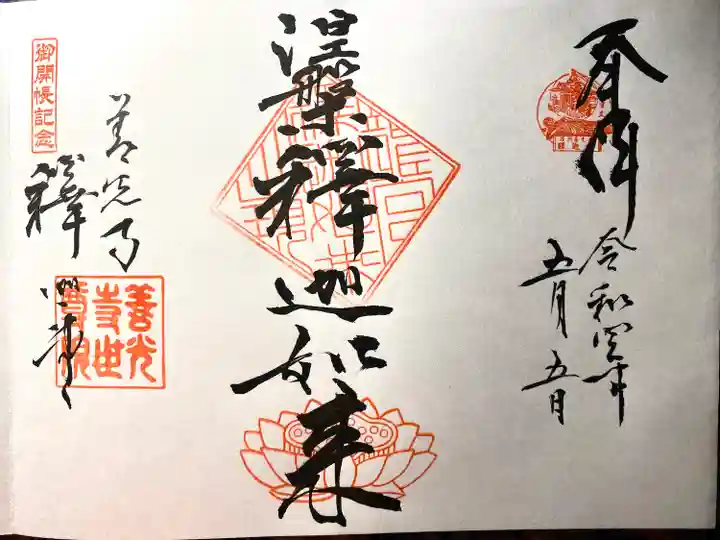 奉拝
令和四年
五月五日
涅槃釋迦如来
御開帳記念
善光寺
釋迦堂
善光
寺世
尊院